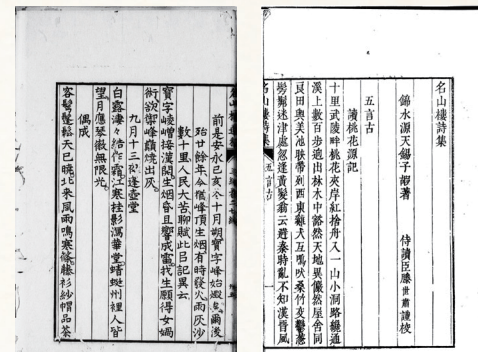 名山樓詩集
錦水源天錫子齢著 侍讀臣滕世肅謹校
五言古
讀桃花源記
十里武陵畔桃花夾岸紅捨舟入一山小洞路纔通
溪上數百步適出林水中豁然天地異儼然屋舍同
良田與美池聯帶列西東雞犬互鳴吠桑竹交鬱蔥
髣髴迷津處忽逢黃髮翁云避秦時亂不知漢晉風
名山樓詩集 五言古
前是安永己亥冬十月朔寶字峰始燬矣爾後
殆廿餘年今猶峰頂生烟有時發火雨灰沙
數十里人民大苦聊賦此㠯記異云
寶字崚嶒接漢開生烟昏旦響成雷我生願得女媧
術欲鄉峰巔燒出灰
九月十三 逢壺堂
白露凄々結作霜江寒桂影滿華堂蜻蜓州裡人皆
望月應琴徽無限光
偶成
容鬢鬖 天已晚北來風雨鳴寒條藤衫紗帽品茶